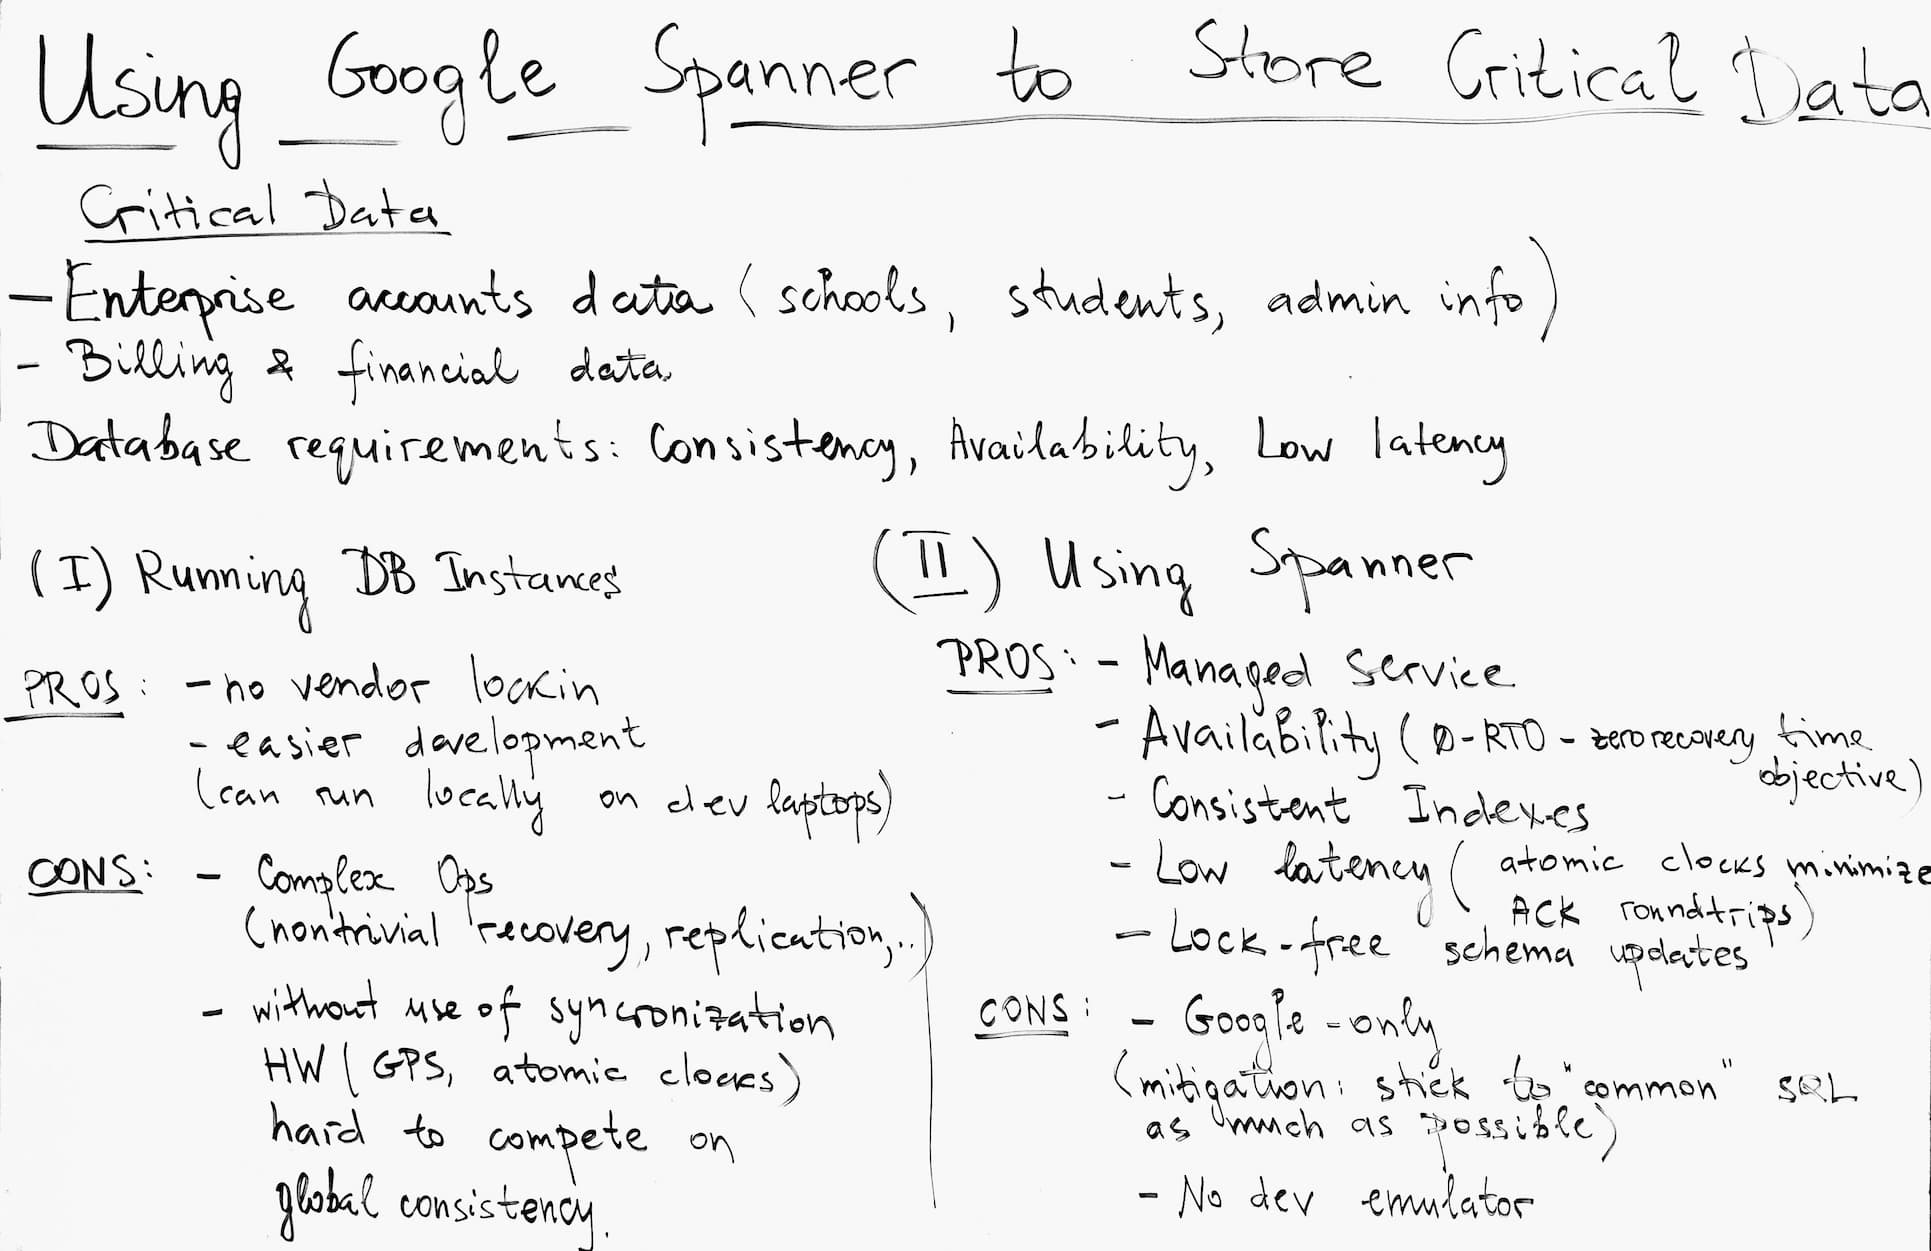 Using Google Spanner to Store Critical Data
Critical Data
- Enterprise accounts data (schools, students, admin info)
- Billing & financial data
Database requirements: Consistency, Availability, Low latency
(I) Running DB Instances
PROS: - no vendor lockin
- easier development
(can run locally on dev laptops)
CONS: - Complex Ops
(nontrivial recovery, replication,..)
- without use of syncronization
HW (GPS, atomic clocks)
hard to compete on
global consistency.
(II) Using Spanner
PROS: - Managed Service
- Availability (0-RTO - zero recovery time
objective)
- Consistent Indexes
- Low latency (atomic clocks minimize
ACK roundtrips)
- Lock-free schema updates
CONS: - Google-only
(mitigation: stick to "common" SQL
as much as possible)
- No dev emulator